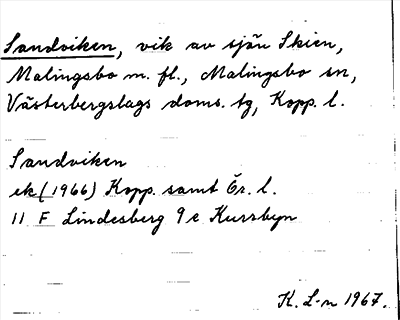 Sandviken, vik av sjön Skien,
Malingsbo m. fl., Malingsbo sn,
Västerbergslags doms. tg, Kopp. l.
Sandviken
ek (1966) Kopp. samt Ör. l.
11 F Lindesberg 9 e Kursbyn
K. L-n 1967.